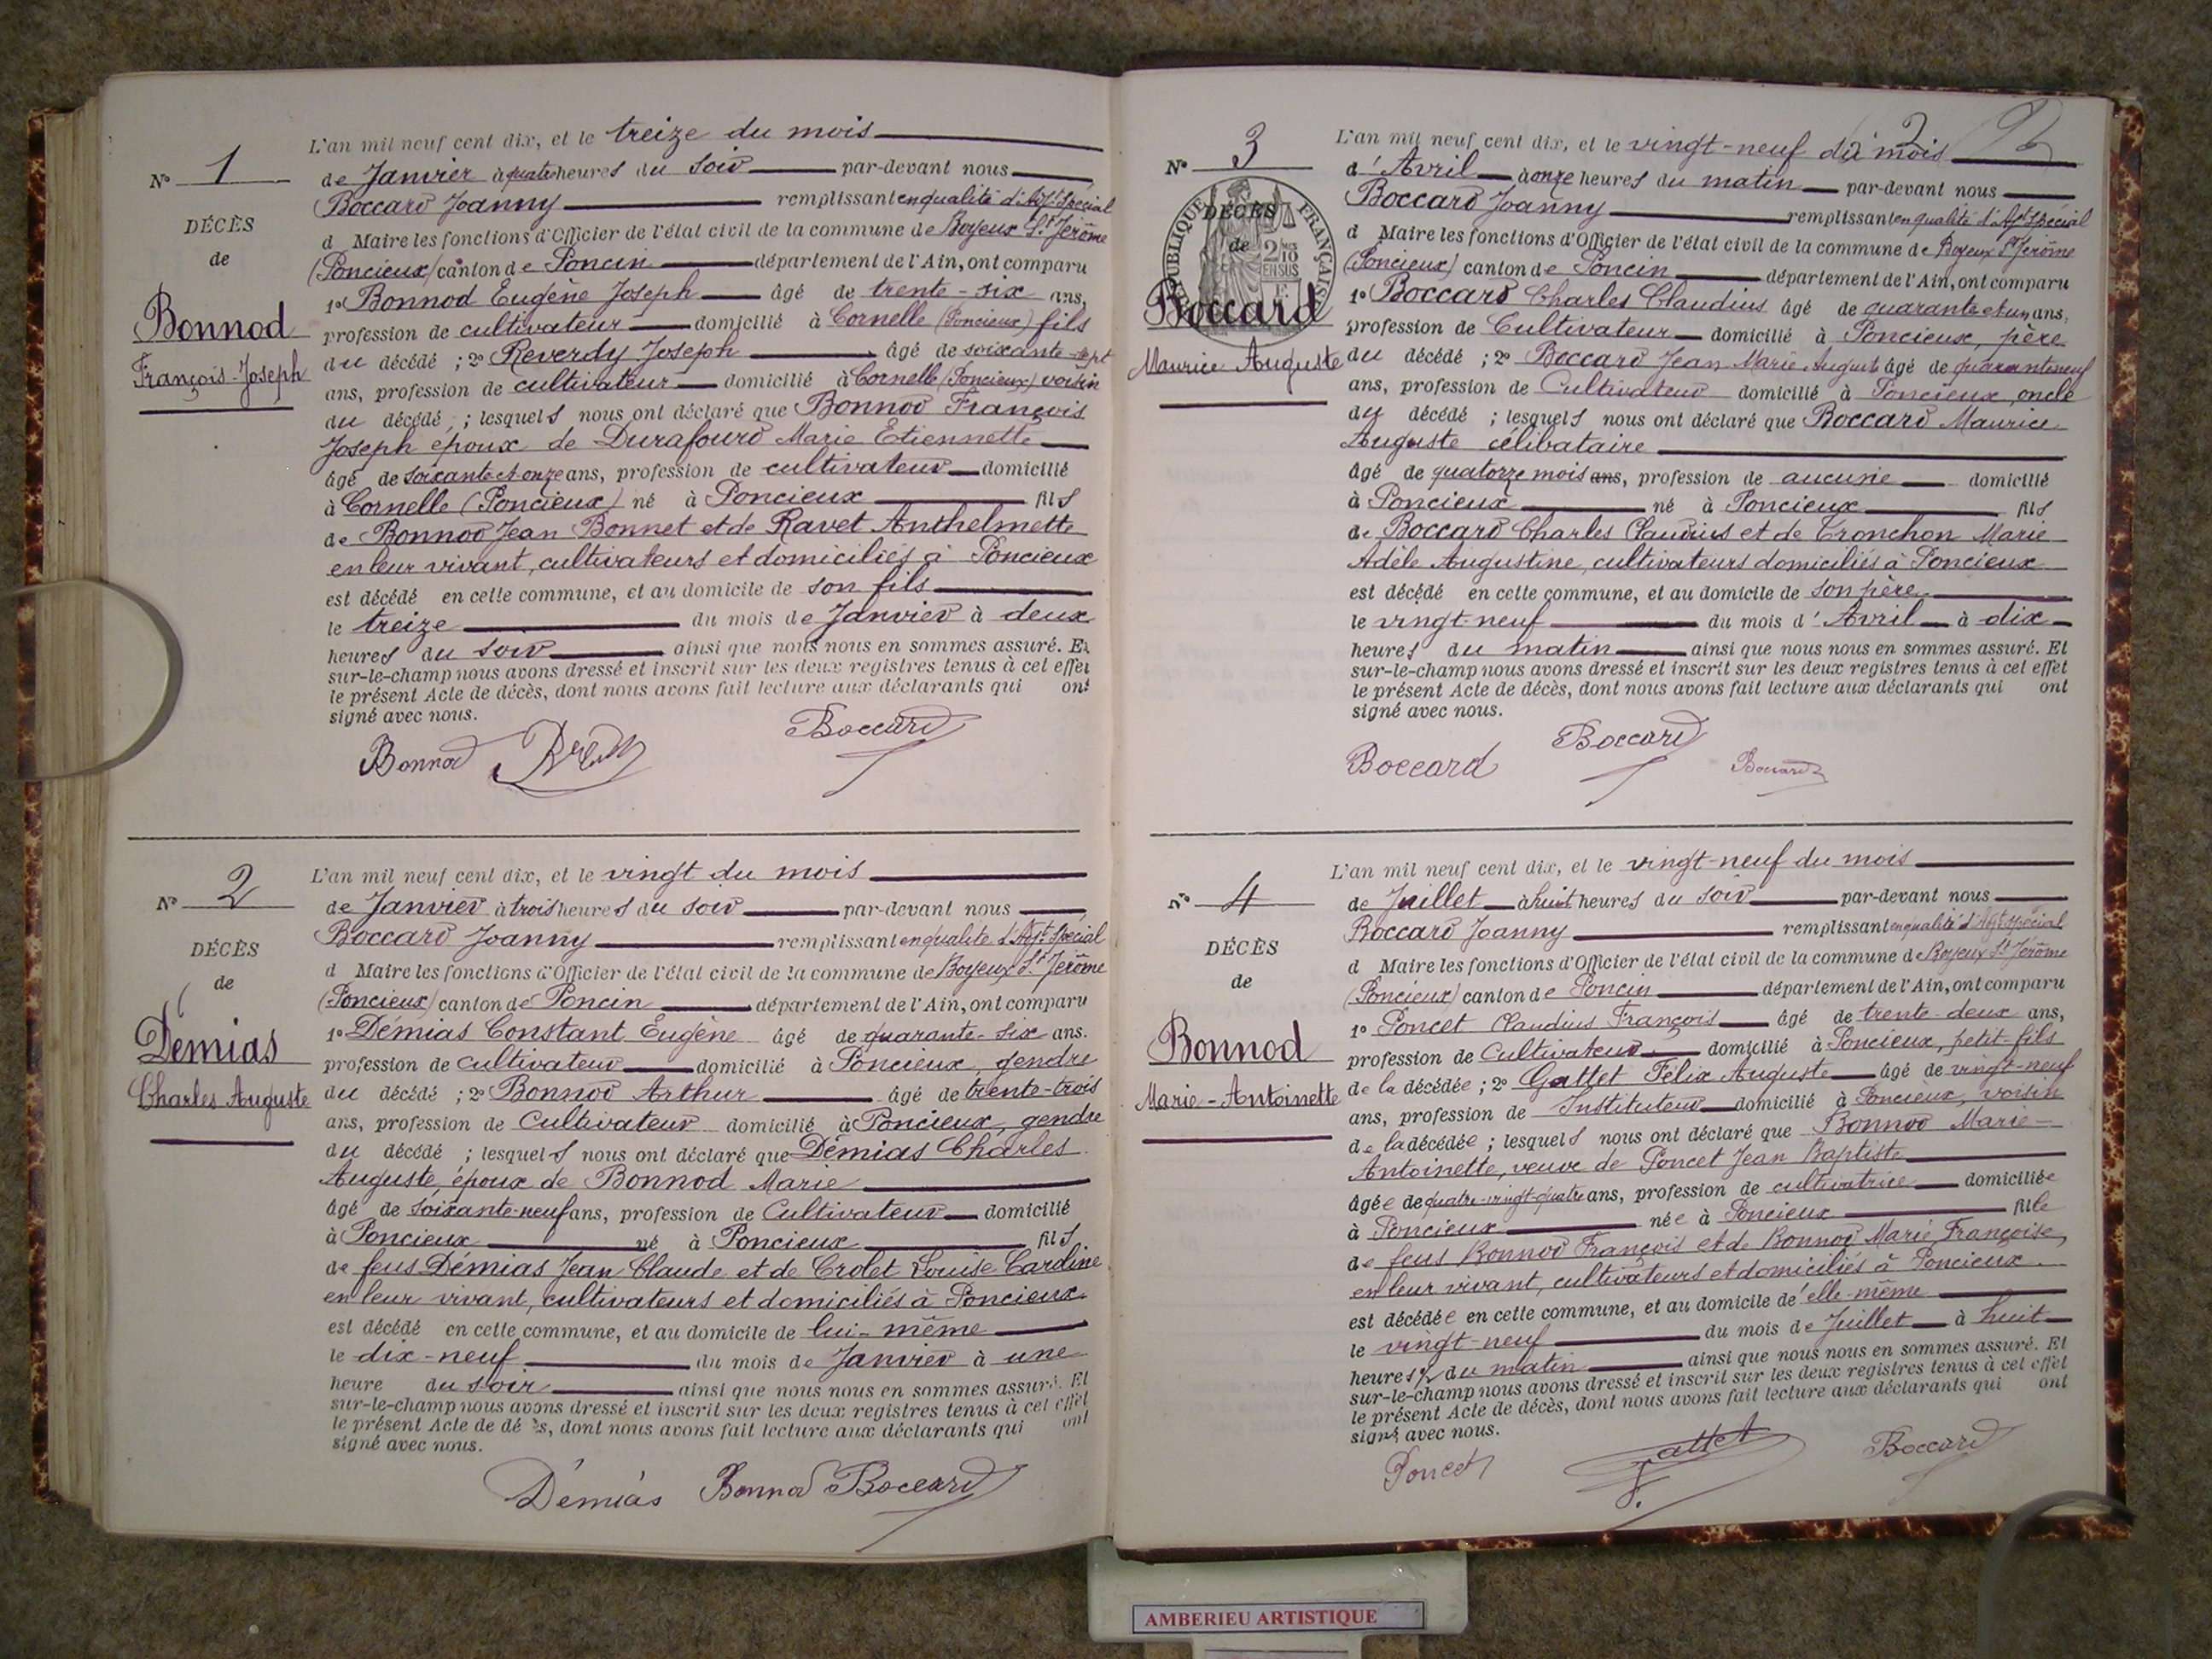 L'an mil neuf cent dix, et le treize du mois
N° 1
de Janvier à quatre heures du soir par-devant nous
Boccard Joanny remplissant en qualité d'Adjt Spécial
DÉCÈS
d Maire les fonctions d'Officier de l'état civil de la commune de Boyeux St Jérôme
de
(Poncieux) canton de Poncin département de l'Ain, ont comparu
1° Bonnod Eugène Joseph âgé de trente-six ans,
Bonnod
profession de cultivateur domicilié à Cornelle (Poncieux) fils
François-Joseph
du décédé ; 2° Reverdy Joseph âgé de soixante-sept
ans, profession de cultivateur domicilié à Cornelle (Poncieux) voisin
du décédé ; lesquels nous ont déclaré que Bonnod François
Joseph époux de Durafourd Marie Etiennette
âgé de soixante et onze ans, profession de cultivateur domicilié
à Cornelle (Poncieux) né à Poncieux fils
de Bonnod Jean Bonnet et de Ravet Anthelmette
en leur vivant, cultivateurs et domiciliés à Poncieux
est décédé en cette commune, et au domicile de son fils
le treize du mois de Janvier à deux
heures du soir ainsi que nous nous en sommes assuré. Et
sur-le-champ nous avons dressé et inscrit sur les deux registres tenus à cet effet
le présent Acte de décès, dont nous avons fait lecture aux déclarants qui ont
signé avec nous.
Bonnod Boccard
L'an mil neuf cent dix, et le vingt du mois
N° 2
de Janvier à trois heures du soir par-devant nous
Boccard Joanny remplissant en qualité d'Adjt Spécial
DÉCÈS
d Maire les fonctions d'Officier de l'état civil de la commune de Boyeux St Jérôme
de
(Poncieux) canton de Poncin département de l'Ain, ont comparu
1° Démias Constant Eugène âgé de quarante-six ans.
Démias
profession de cultivateur domicilié à Poncieux, gendre
Charles Auguste
du décédé ; 2° Bonnod Arthur âgé de trente-trois
ans, profession de Cultivateur domicilié à Poncieux, gendre
du décédé ; lesquels nous ont déclaré que Démias Charles
Auguste, époux de Bonnod Marie
âgé de soixante-neuf ans, profession de Cultivateur domicilié
à Poncieux né à Poncieux fils
de feus Démias Jean Claude et de Crolet Louise Caroline
en leur vivant, cultivateurs et domiciliés à Poncieux
est décédé en cette commune, et au domicile de lui-même
le dix-neuf du mois de Janvier à une
heure du soir ainsi que nous nous en sommes assuré. Et
sur-le-champ nous avons dressé et inscrit sur les deux registres tenus à cet effet
le présent Acte de dé ès, dont nous avons fait lecture aux déclarants qui ont
signé avec nous.
Démias Bonnod Boccard
2
L'an mil neuf cent dix, et le vingt-neuf du mois
N° 3
d'Avril à onze heures du matin par-devant nous
Boccard Joanny remplissant en qualité d'Adjt Spécial
RÉPUBLIQUE FRANÇAISE
DÉCÈS
d Maire les fonctions d'Officier de l'état civil de la commune de Boyeux St Jérôme
de
2/10 EN SUS
(Poncieux) canton de Poncin département de l'Ain, ont comparu
1° Boccard Charles Claudius âgé de quarante et un ans,
Boccard
profession de Cultivateur domicilié à Poncieux, père
Maurice Auguste
du décédé ; 2° Boccard Jean Marie August âgé de quarante neuf
ans, profession de Cultivateur domicilié à Poncieux, oncle
du décédé ; lesquels nous ont déclaré que Boccard Maurice
Auguste célibataire
âgé de quatorze mois ans, profession de aucune domicilié
à Poncieux né à Poncieux fils
de Boccard Charles Claudius et de Tronchon Marie
Adèle Augustine, cultivateurs domiciliés à Poncieux
est décédé en cette commune, et au domicile de son père
le vingt-neuf du mois d'Avril à dix
heures du matin ainsi que nous nous en sommes assuré. Et
sur-le-champ nous avons dressé et inscrit sur les deux registres tenus à cet effet
le présent Acte de décès, dont nous avons fait lecture aux déclarants qui ont
signé avec nous.
Boccard Boccard Boccard
L'an mil neuf cent dix, et le vingt-neuf du mois
N° 4
de Juillet à huit heures du soir par-devant nous
Boccard Joanny remplissant en qualité d'Adjt spécial
DÉCÈS
d Maire les fonctions d'Officier de l'état civil de la commune de Boyeux St Jérôme
de
(Poncieux) canton de Poncin département de l'Ain, ont comparu
1° Poncet Claudius François âgé de trente-deux ans,
Bonnod
profession de Cultivateur domicilié à Poncieux, petit-fils
Marie-Antoinette
de la décédée ; 2° Gattet Félix Auguste âgé de vingt-neuf
ans, profession de Instituteur domicilié à Poncieux, voisin
de la décédée ; lesquels nous ont déclaré que Bonnod Marie-
Antoinette, veuve de Poncet Jean Baptiste
âgée de quatre-vingt-quatre ans, profession de cultivatrice domiciliée
à Poncieux née à Poncieux fille
de feus Bonnod François et de Bonnod Marie Françoise,
en leur vivant, cultivateurs et domiciliés à Poncieux
est décédée en cette commune, et au domicile de elle-même
le vingt-neuf du mois de Juillet à huit
heures ½ du matin ainsi que nous nous en sommes assuré. Et
sur-le-champ nous avons dressé et inscrit sur les deux registres tenus à cet effet
le présent Acte de décès, dont nous avons fait lecture aux déclarants qui ont
signé avec nous.
Poncet F. Gattet Boccard
AMBERIEU ARTISTIQUE